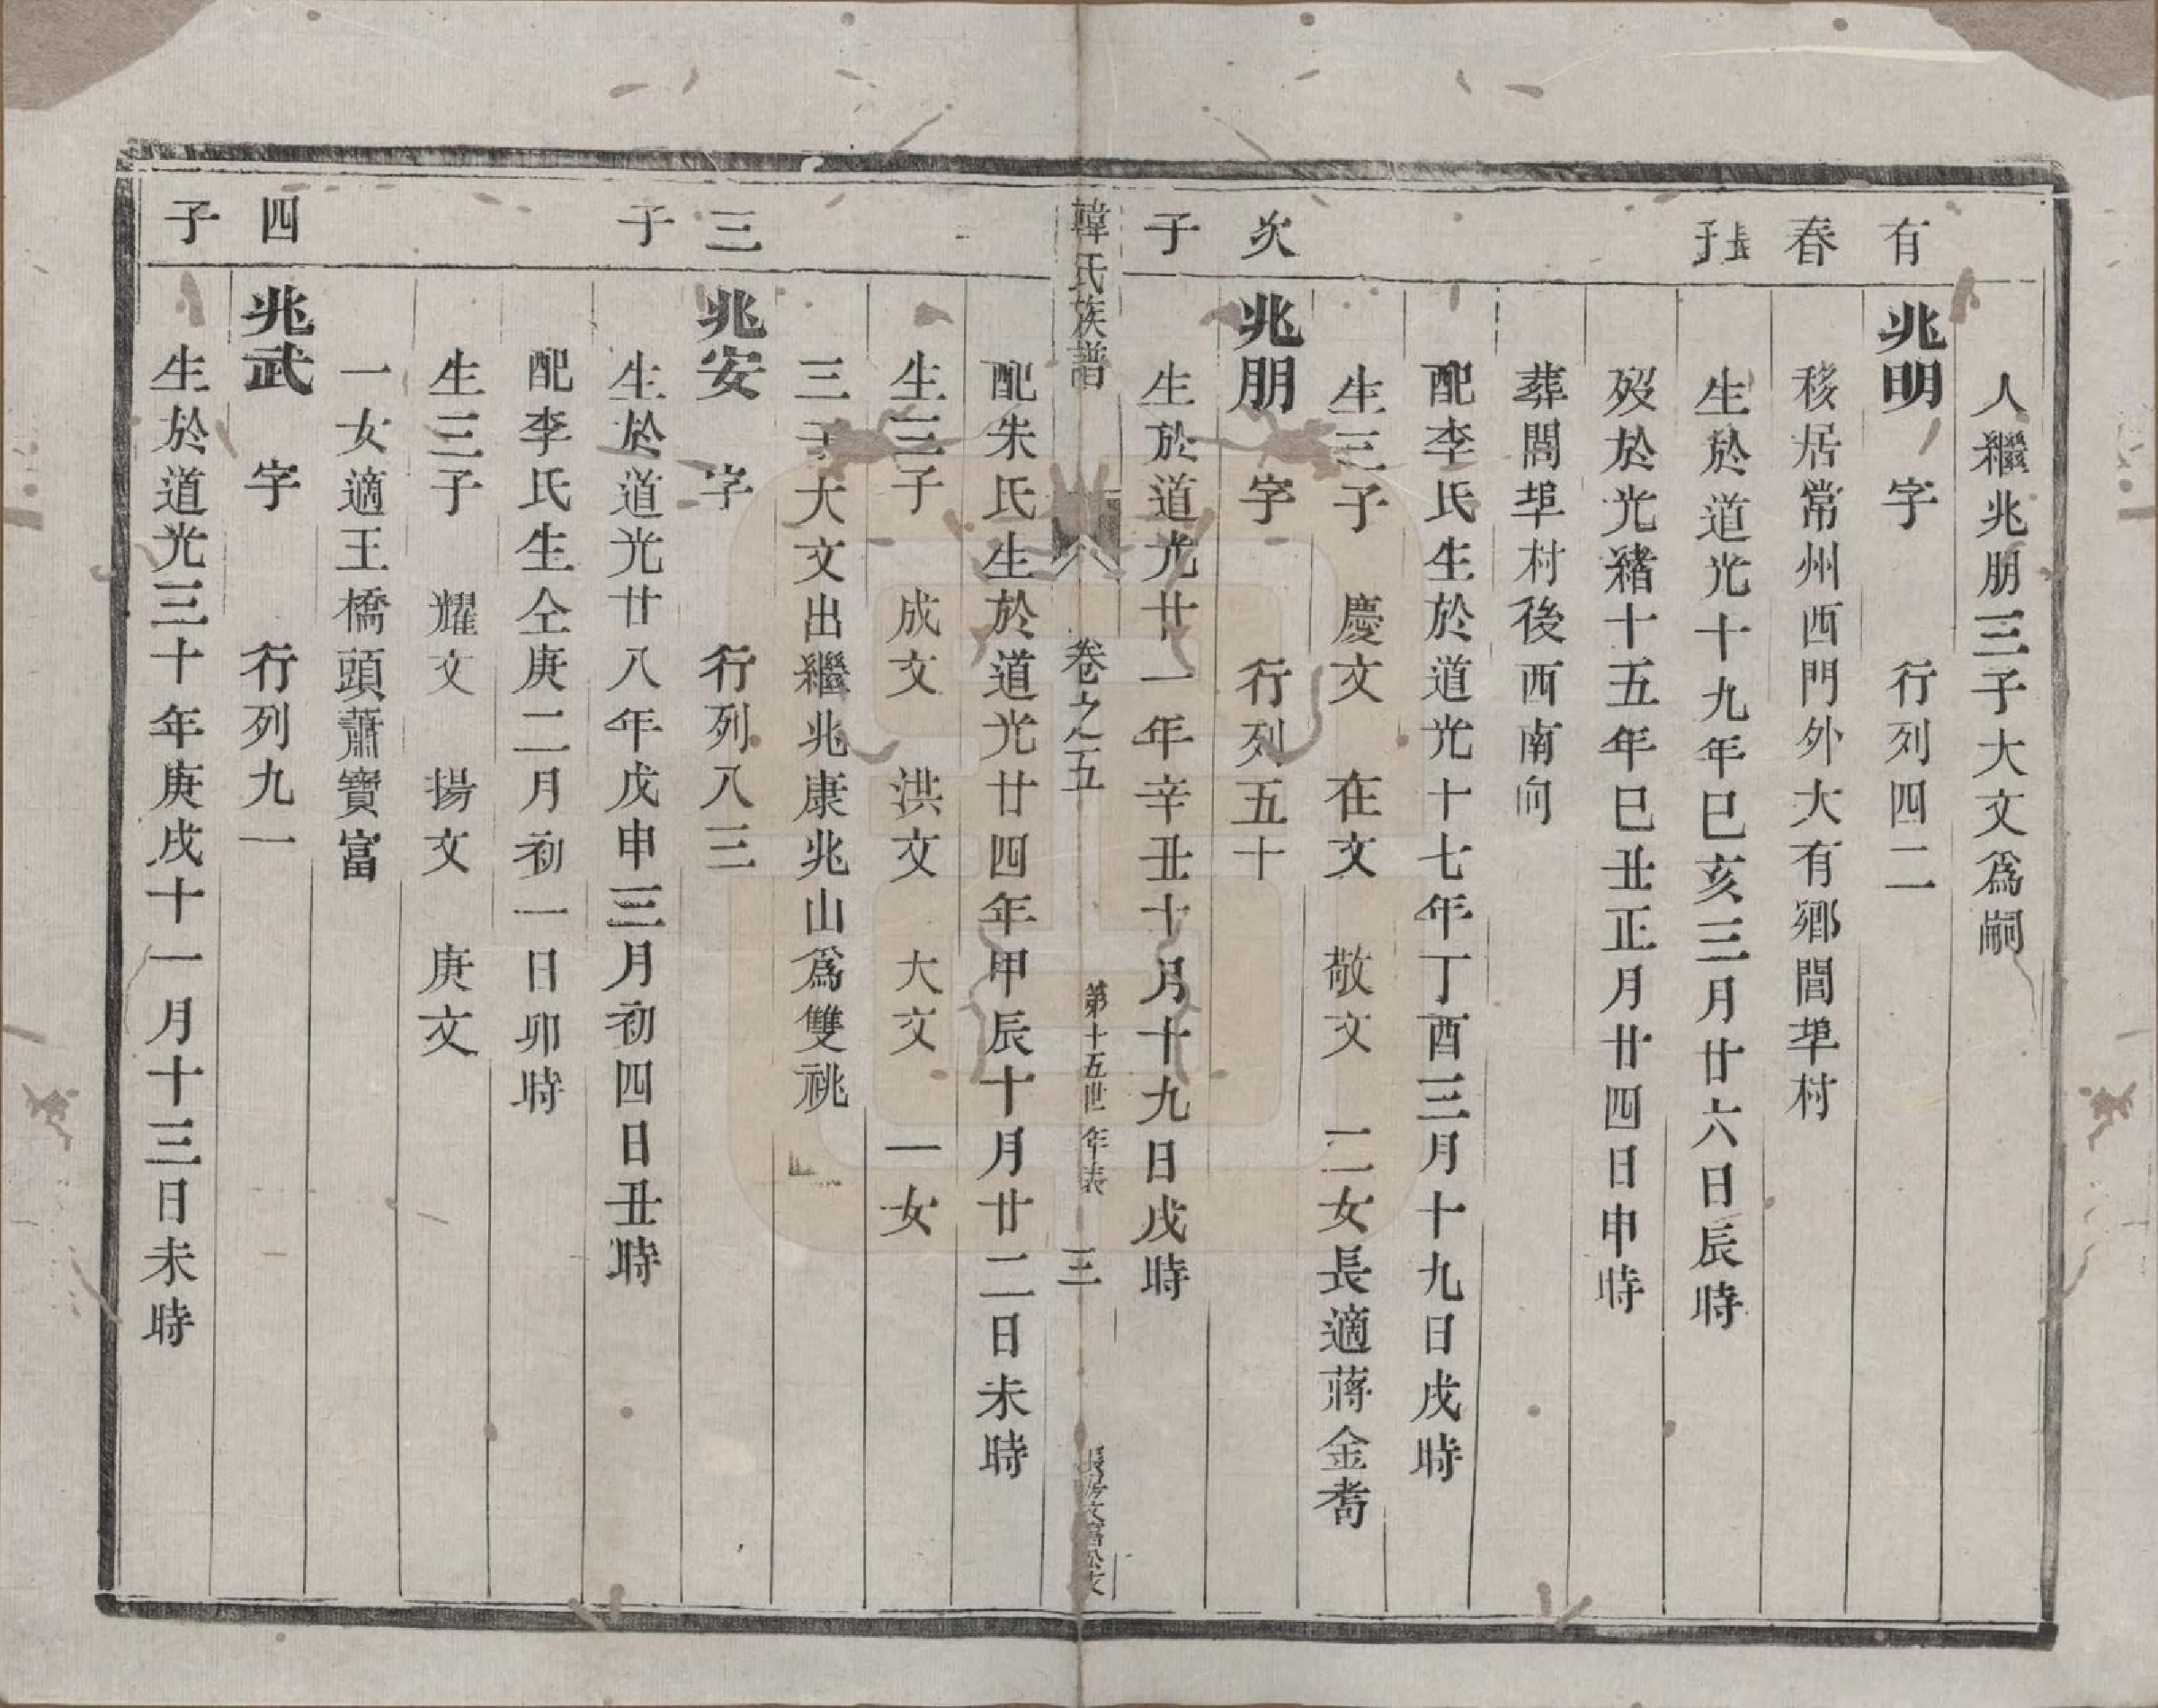 人繼兆朋三子大文爲嗣
有 兆明 字 行列四二
春 移居常州西門外大有鄉閭埠村
長子 生於道光十九年巳亥三月廿六日辰時
歿於光緒十五年巳丑正月廿四日申時
葬閭埠村後西南向
配李氏生於道光十七年丁酉三月十九日戌時
生三子 慶文 在文 敬文 二女長適蔣金耆
次 兆朋 字 行列五十
子 生於道光廿一年辛丑十月十九日戌時
韓氏族譜 卷之五 第十五世 年表 三
配朱氏生於道光廿四年甲辰十月廿二日未時
生三子 成文 洪文 大文 一女
三子大文出繼兆康兆山爲雙祧
三 兆安 字 行列八三
子 生於道光廿八年戊申三月初四日丑時
配李氏生仝庚二月初一日卯時
生三子 耀文 揚文 庚文
一女適王橋頭蕭寶富
四 兆武 字 行列九一
子 生於道光三十年庚戌十一月十三日未時